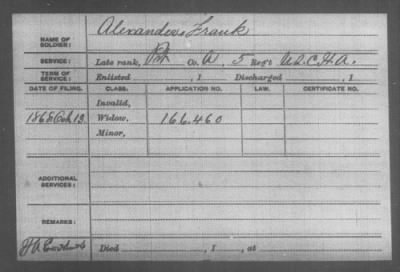 NAME OF SOLDIER: Alexander, Frank
SERVICE: Late rank, Pvt Co. A, 5 Reg't U.S.C.H.A.
TERM OF SERVICE: Enlisted , 1 Discharged , 1
DATE OF FILING. CLASS. APPLICATION NO. LAW. CERTIFICATE NO.
Invalid,
1868 Oct 13. Widow, 166.460
Minor,
ADDITIONAL SERVICES:
REMARKS:
Died , 1 , at